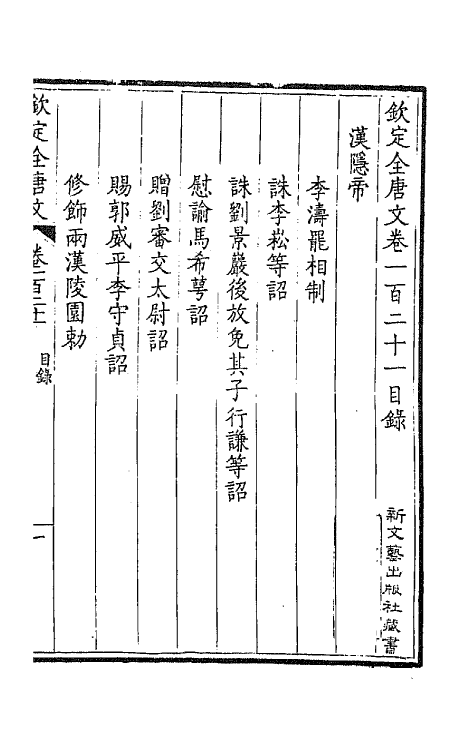 欽定全唐文卷一百二十一目錄
新文藝出版社藏書
漢隱帝
李濤罷相制
誅李崧等詔
誅劉景巖後放免其子行謙等詔
慰諭馬希萼詔
贈劉審交太尉詔
賜郭威平李守貞詔
修飾兩漢陵園勅
欽定全唐文 卷一百二十一 目錄 一